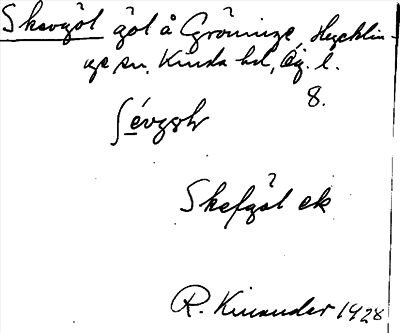 Skevgöl göl å Gröninge, Hycklin-
ge sn. Kinda hd, Ög. l.
8.
ʃévgøl
Skefgöl ek
R. Kinander 1928